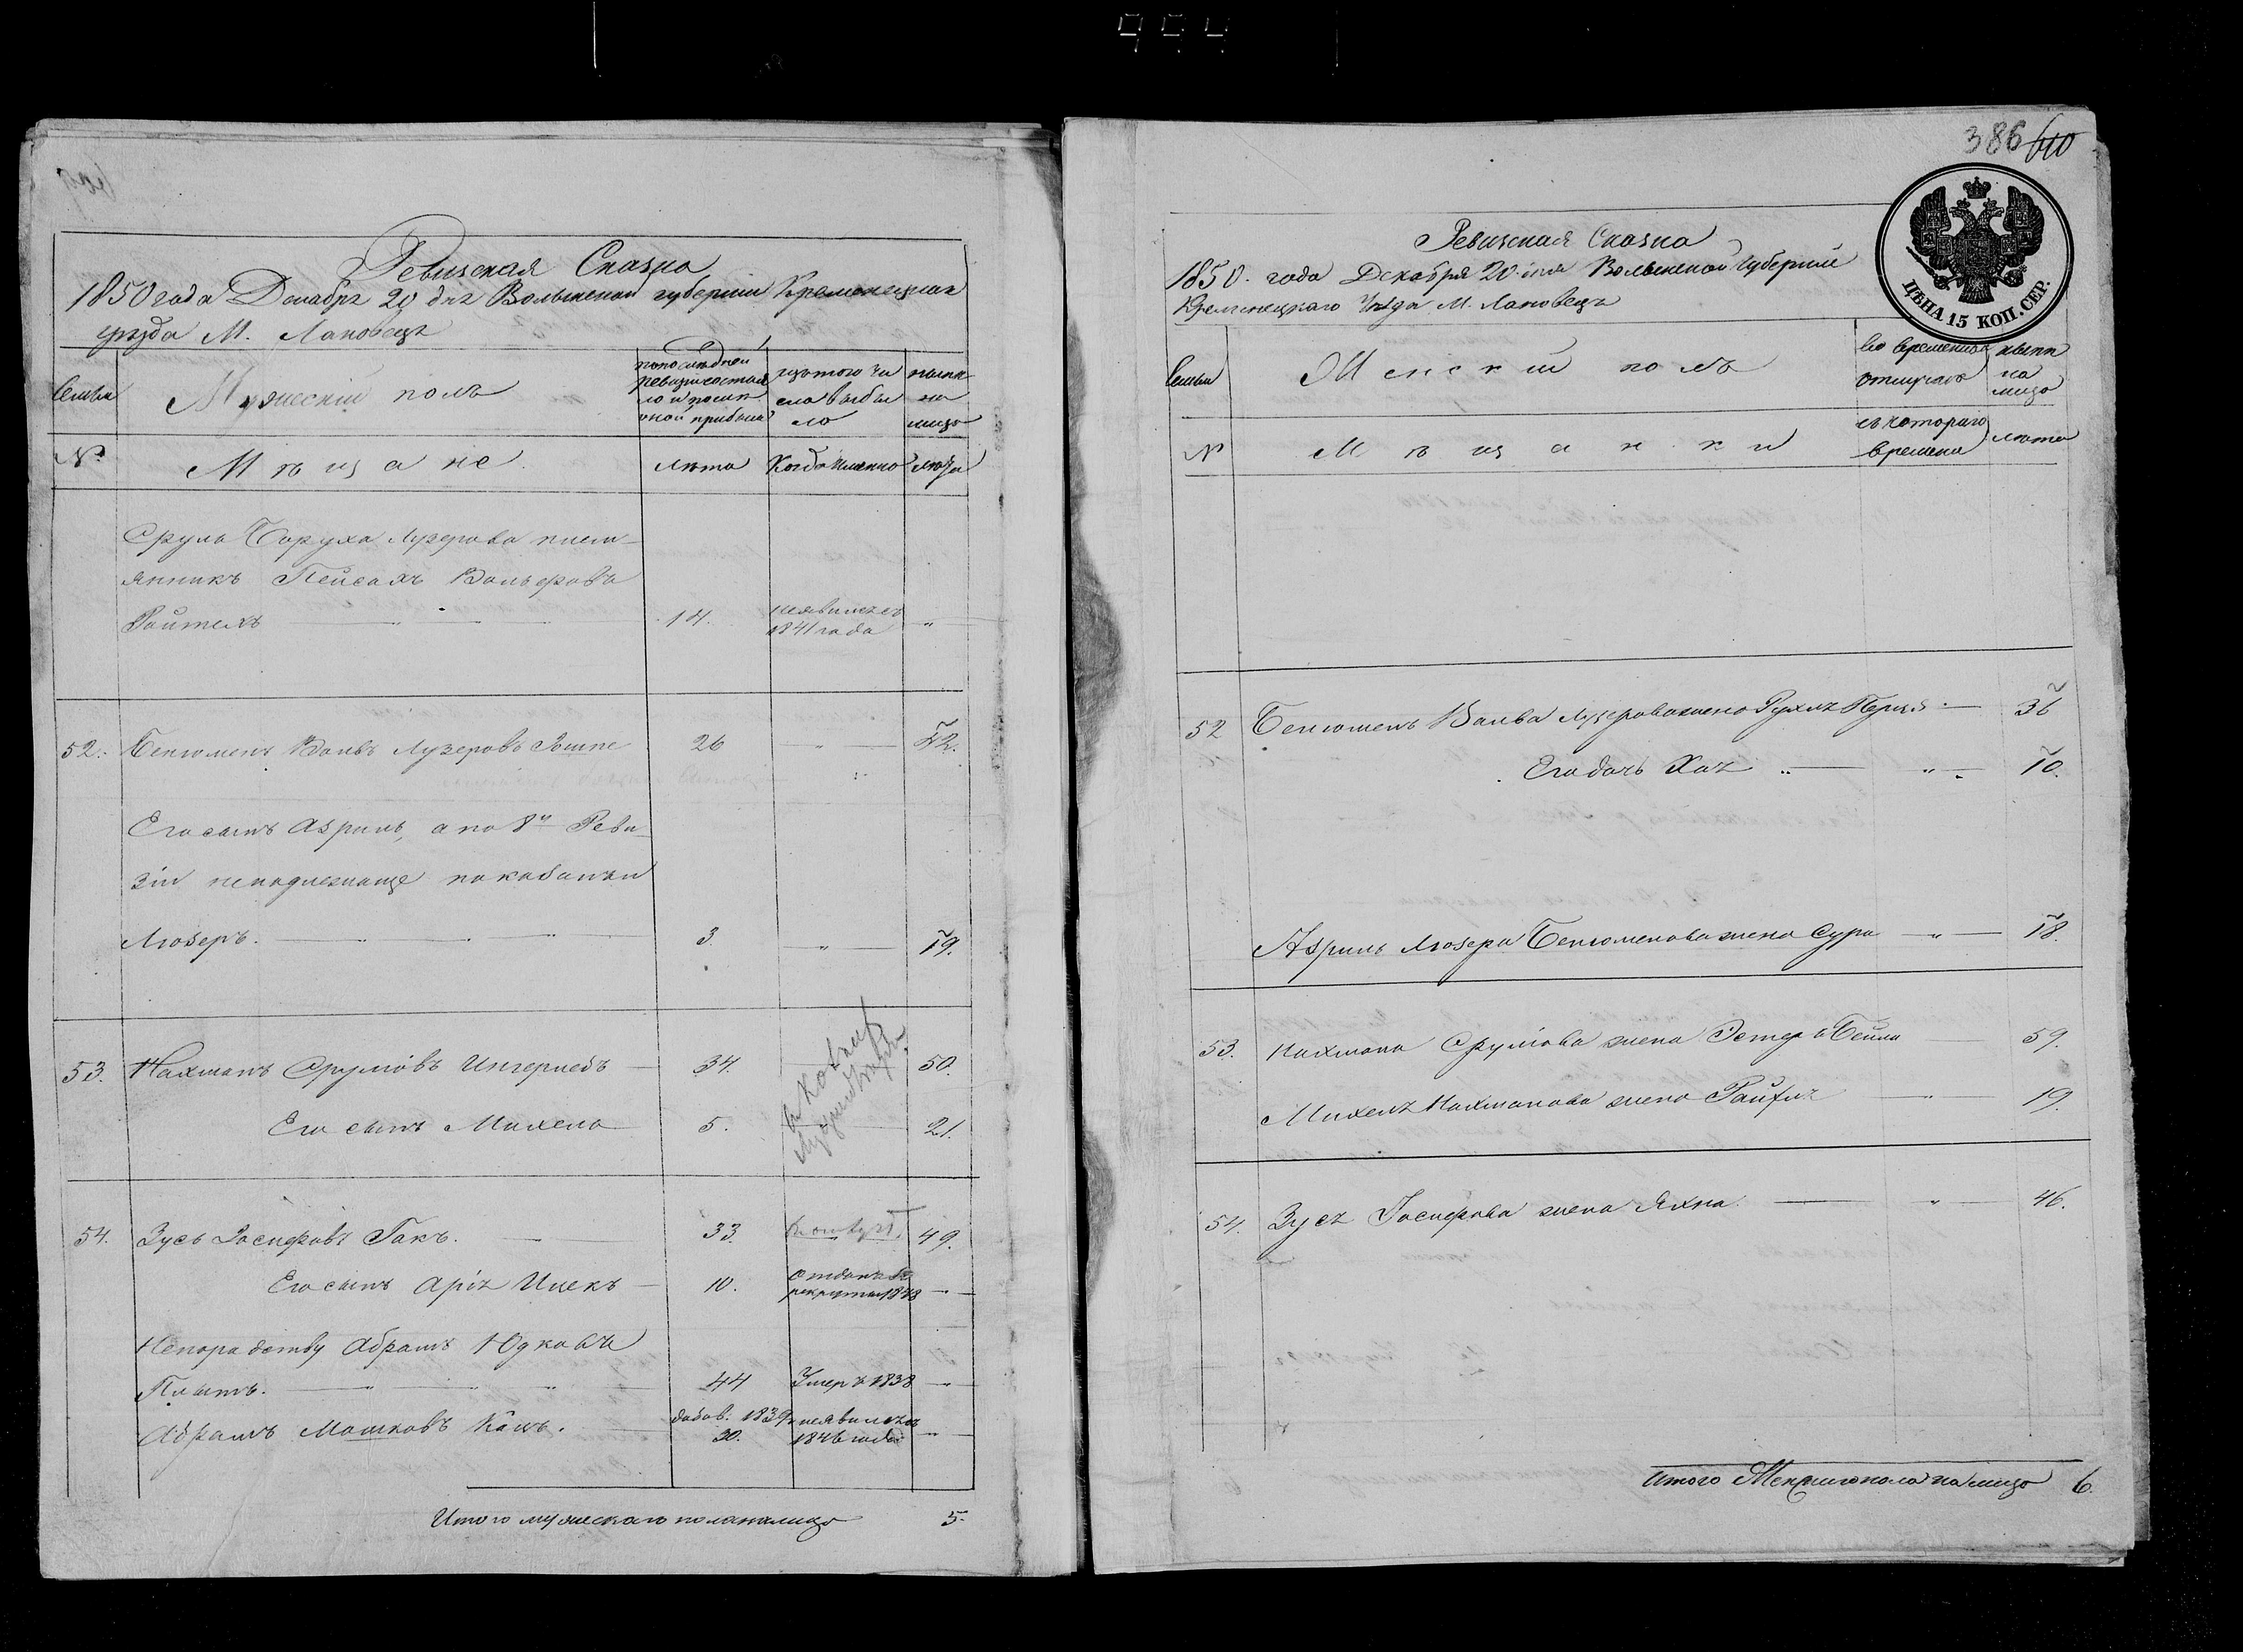 386 610
Ревизская Сказка
1850 года Декабря 20 дня Волынской губернии Кременецкаго
уезда М. Лановец
Семьи
Мужеский полъ
по последней
ревизии состоя
ло и после
оной прибыло
изтого чи
сла выбы
ло
ныне
на
лицо
№
Мѣщане.
Лѣта
Когда именно
Лѣта
Сруль Боруха Лузерова плем-
янникъ Пейсахъ Вольфовъ
14.
неявился съ
1841 года
52.
Бенюменъ Вольвъ Лузеровъ
26
42.
Его сынъ Азриль, а по 8й Реви-
зіи
Люзеръ.
3.
19.
53.
Нахманъ Срулiовъ
34.
50.
Его сынъ Михель
5.
21.
54.
Зусь Іосифовъ Гакъ.
33.
49.
Его сынъ Аріa Ицекъ
10.
Отданъ въ
рекруты 1848
Непорадству Абрамъ Юдковъ
44
Умеръ 1838
Абрамъ Мошковъ Кацъ.
добав. 1839
30.
неявился съ
1846 года
Итого мужескаго пола налицо 5.
Ревизская Сказка
1850. года Декабря 20 дня Волынской Губернии
Кременецкаго Уѣзда М. Лановецъ
ЦѢНА 15 КОП. СЕР.
Семьи
Женский полъ
Во временной
отлучке
ныне
на
лицо
№
Мѣщанки
съ котораго
времени
лета
52
Бенюменъ Вольва Лузерова жена Рухля Перля
36
Его дочь Хая
10.
Азриль Люзера Бенюменова жена Сура
18.
53.
Нахмана Срулiова жена Эстеръ Бейла
59.
Михеля Нахманова жена Райзя
19.
54.
Зуся Іосифова жена Яхна
46.
Итого Женскаго пола на лицо 6.